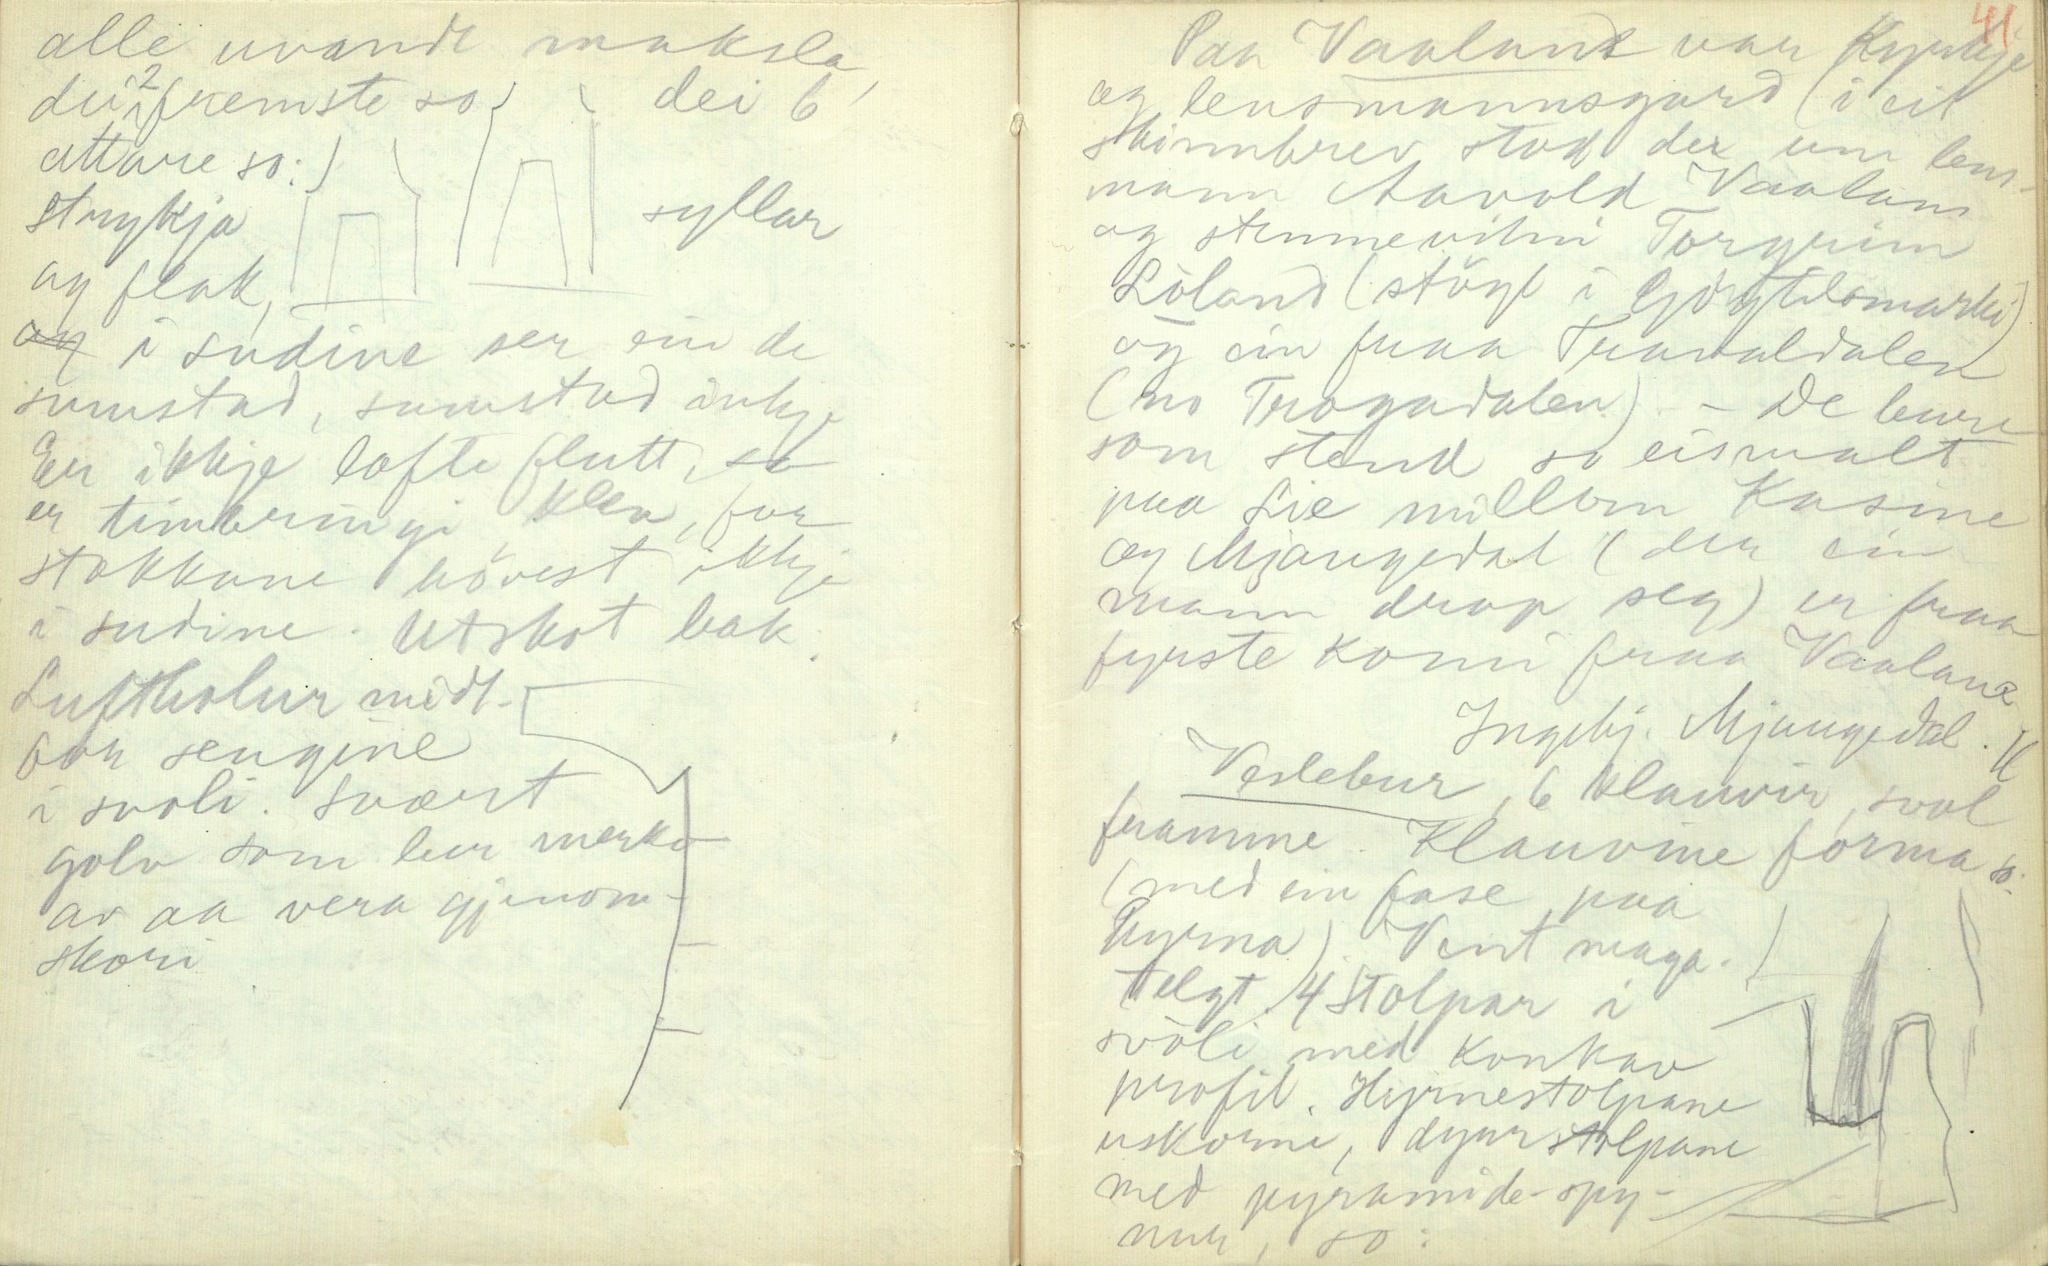 alle uvandt maksla,
dei 2 fremste so dei 6
attare so:
strykja syllar
og flak,
og i sudine ser ein de
sumstad, sumstad inkje
Er ikkje lofte flutt, so
er timbringi klen, for
stokkane hövest ikkje
i sudine. Utskot bak.
Luftholur midt-
for sengine
i svoli. Svært
golv som ber merke
av aa vera gjenom-
skori
41
Paa Vaaland var Kyrkje
og lensmannsgard (i eit
skinnbrev stod der um lens-
mann Aavold Vaaland
og stemnevitni Torgrim
Löland (stögt i
og ein fraa Travaldalen
(no Trogadalen) - De bure
som stend so eismalt
paa Lie millom Kasine
og Mjaugedal (der ein
mann drap seg) er fraa
fyrste komi fraa Vaaland
Ingebj. Mjaugedal.
Veslebur, 6 klauvir, sval
framme. Klauvine forma so:
(med ein fase paa
hyrna). Vent maga-
telgt. 4 stolpar i
svöli med konkav
profil. Hyrnestolpane
uskorne, dyurstolpane
med pyramide-spy-
nur, so: